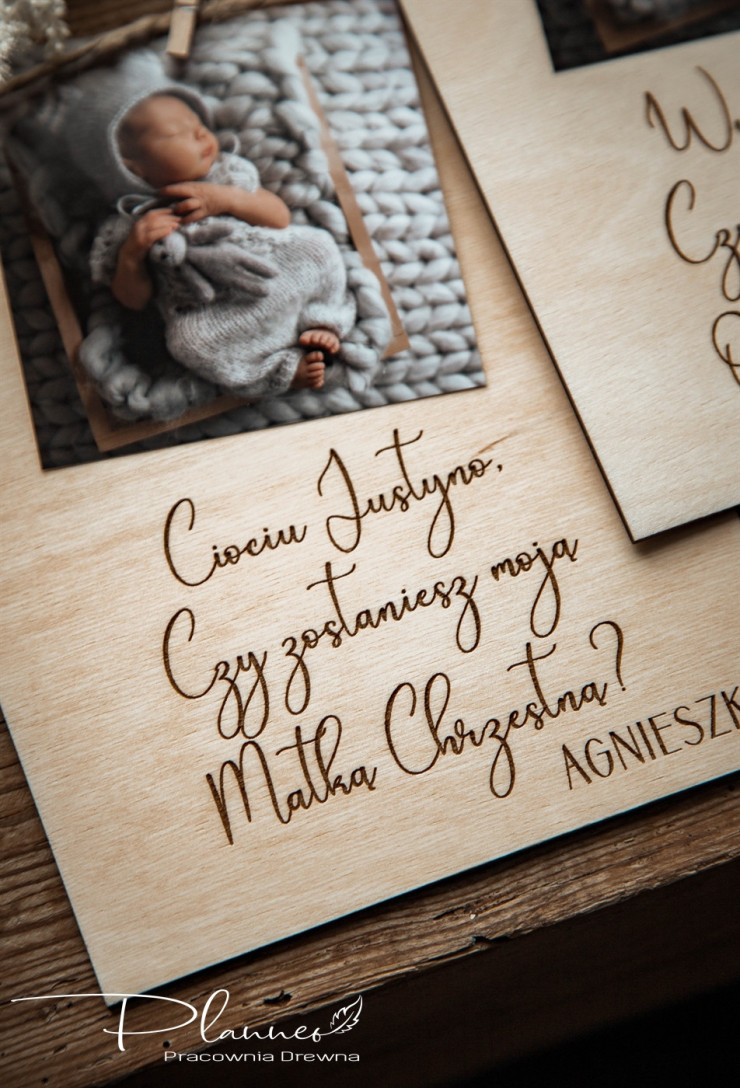 Ciociu Justyno,
Czy zostaniesz moją
Matką Chrzestną?
AGNIESZK
Planneo
Pracownia Drewna